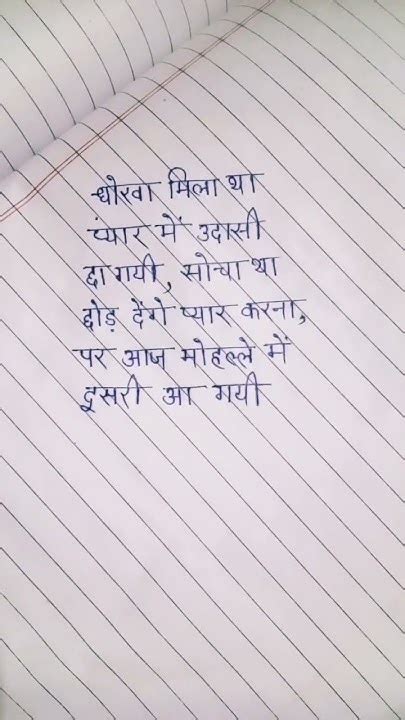 धोखा मिला था
प्यार में उदासी
छा गयी, सोचा था
छोड़ देंगे प्यार करना,
पर आज मोहल्ले में
दूसरी आ गयी